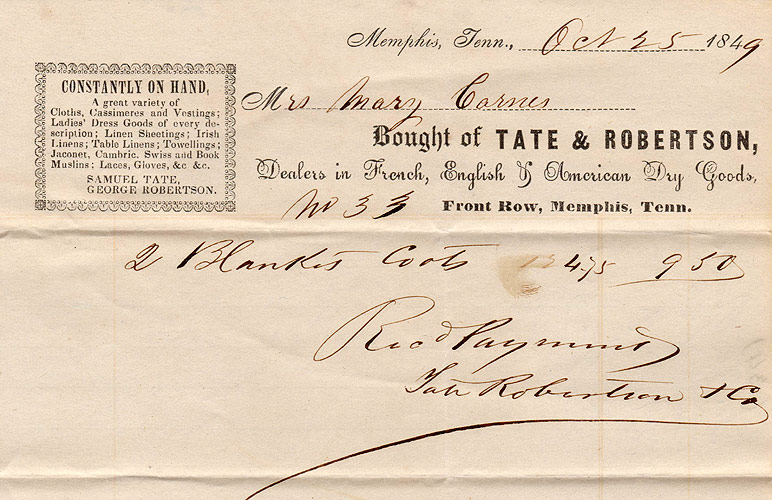 Memphis, Tenn., Oct 25 1849
CONSTANTLY ON HAND,
A great variety of
Cloths, Cassimeres and Vestings;
Ladies' Dress Goods of every de-
scription; Linen Sheetings; Irish
Linens; Table Linens; Towellings;
Jaconet, Cambric, Swiss and Book
Muslins; Laces, Gloves, &c &c.
SAMUEL TATE,
GEORGE ROBERTSON.
Mrs Mary Carnes
Bought of TATE & ROBERTSON,
Dealers in French, English & American Dry Goods,
No 33 Front Row, Memphis, Tenn.
2 Blankets Coats 4.75 9 50
Recd Payment
Tate Robertson & Co